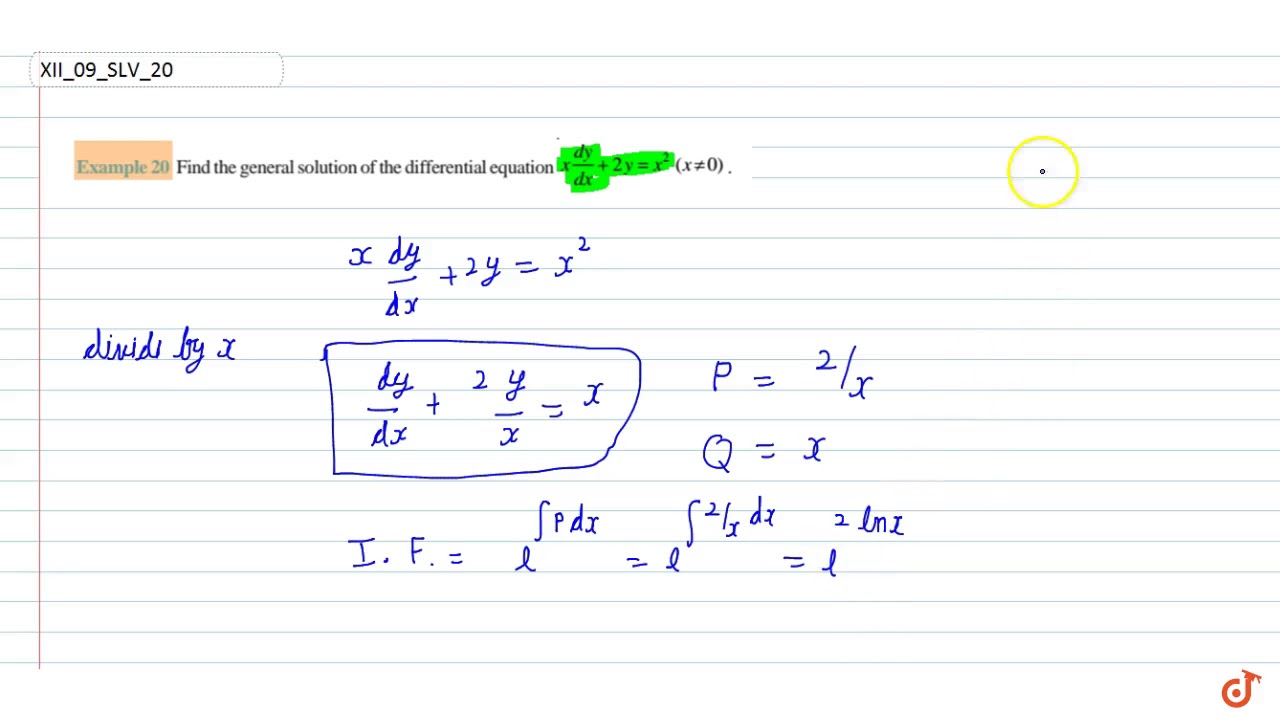 XII_09_SLV_20
Example 20 Find the general solution of the differential equation x dy/dx + 2y = x² (x≠0) .
x dy/dx + 2y = x²
divide by x
dy/dx + 2 y/x = x
P = 2/x
Q = x
I. F. = e^∫P dx = e^∫2/x dx = e^2 ln x